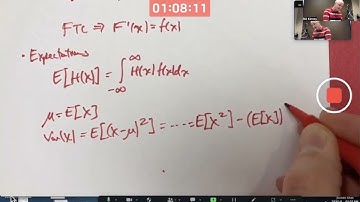 01:08:11
FTC ⇒ F'(x) = f(x)
• Expectations
E[H(x)] = ∫_{-∞}^{∞} H(x) f(x) dx
μ = E[X]
Var(X) = E[(X-μ)²] = ····· = E[X²] - (E[X])